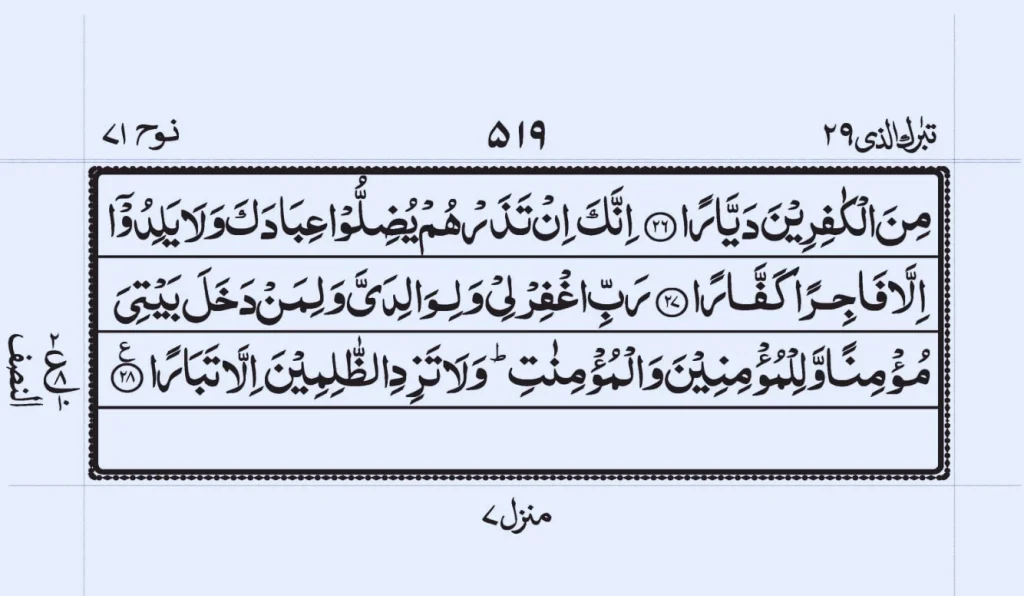 تبٰرك الذی ۲۹
۵۱۹
نوح ۷۱
مِنَ الْكٰفِرِيْنَ دَيَّارًا ﴿۲۶﴾ اِنَّكَ اِنْ تَذَرْهُمْ يُضِلُّوْا عِبَادَكَ وَلَا يَلِدُوْۤا
اِلَّا فَاجِرًا كَفَّارًا ﴿۲۷﴾ رَبِّ اغْفِرْ لِیْ وَلِوَالِدَیَّ وَلِمَنْ دَخَلَ بَيْتِیَ
مُؤْمِنًا وَّلِلْمُؤْمِنِيْنَ وَالْمُؤْمِنٰتِ ؕ وَلَا تَزِدِ الظّٰلِمِيْنَ اِلَّا تَبَارًا ﴿۲۸﴾ ع
۲ ع ۸ ۱۰
النصف
منزل ۷